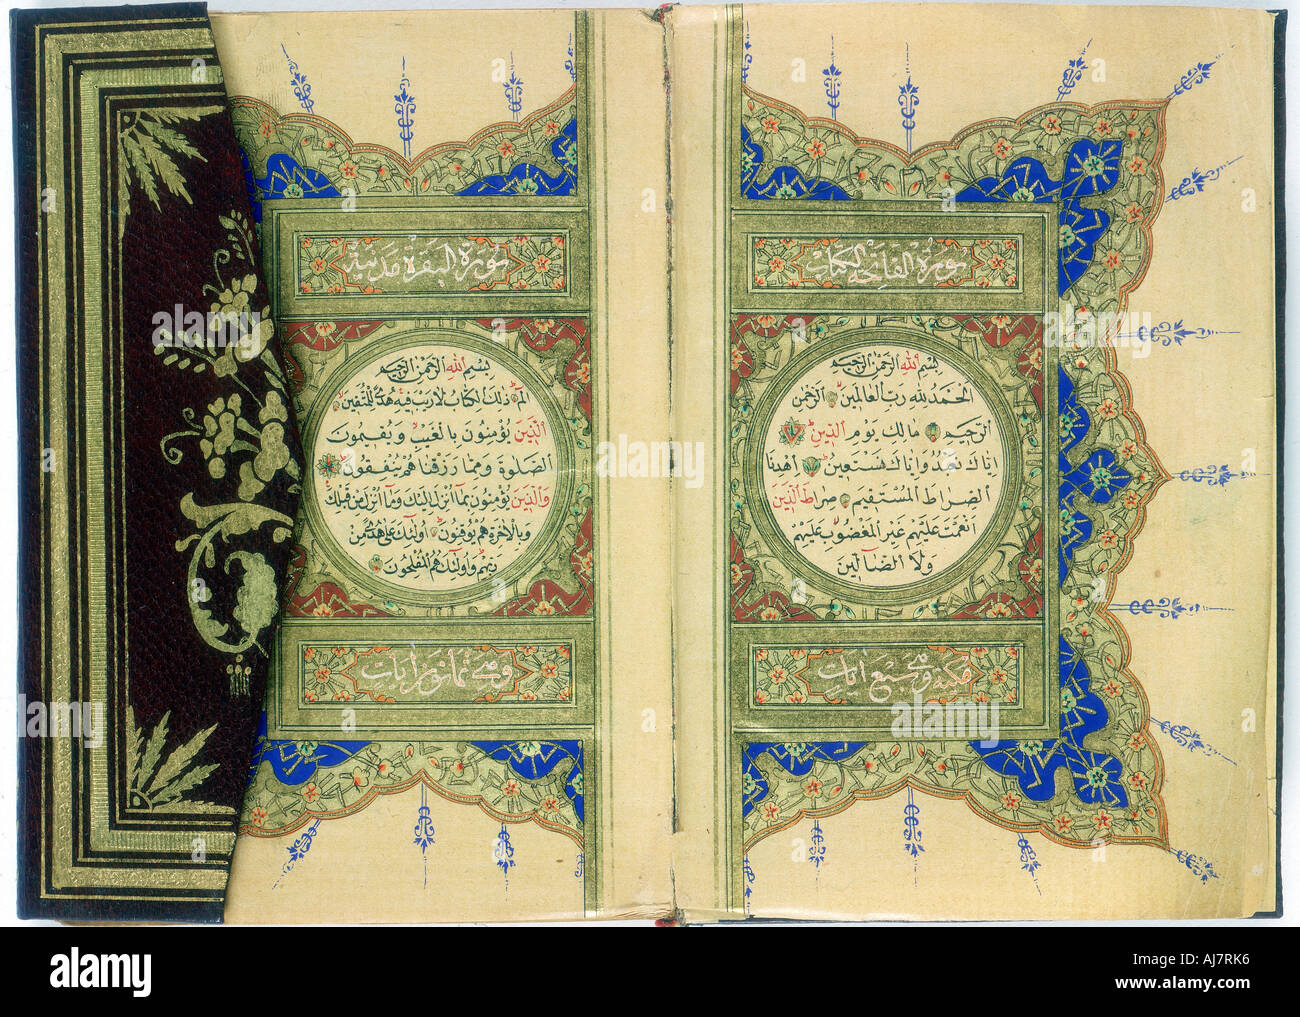 سورة الفاتحة الكتاب
بسم الله الرحمن الرحيم
الحمد لله رب العالمين الرحمن
الرحيم مالك يوم الدين
اياك نعبد واياك نستعين اهدنا
الصراط المستقيم صراط الذين
انعمت عليهم غير المغضوب عليهم
ولا الضالين
مكية وهي سبع ايات
سورة البقرة مدنية
بسم الله الرحمن الرحيم
الم ذلك الكتاب لا ريب فيه هدى للمتقين
الذين يؤمنون بالغيب ويقيمون
الصلوة ومما رزقناهم ينفقون
والذين يؤمنون بما انزل اليك وما انزل من قبلك
وبالاخرة هم يوقنون اولئك على هدى من
ربهم واولئك هم المفلحون
وهي ايات
alamy
Image ID: AJ7RK6
www.alamy.com